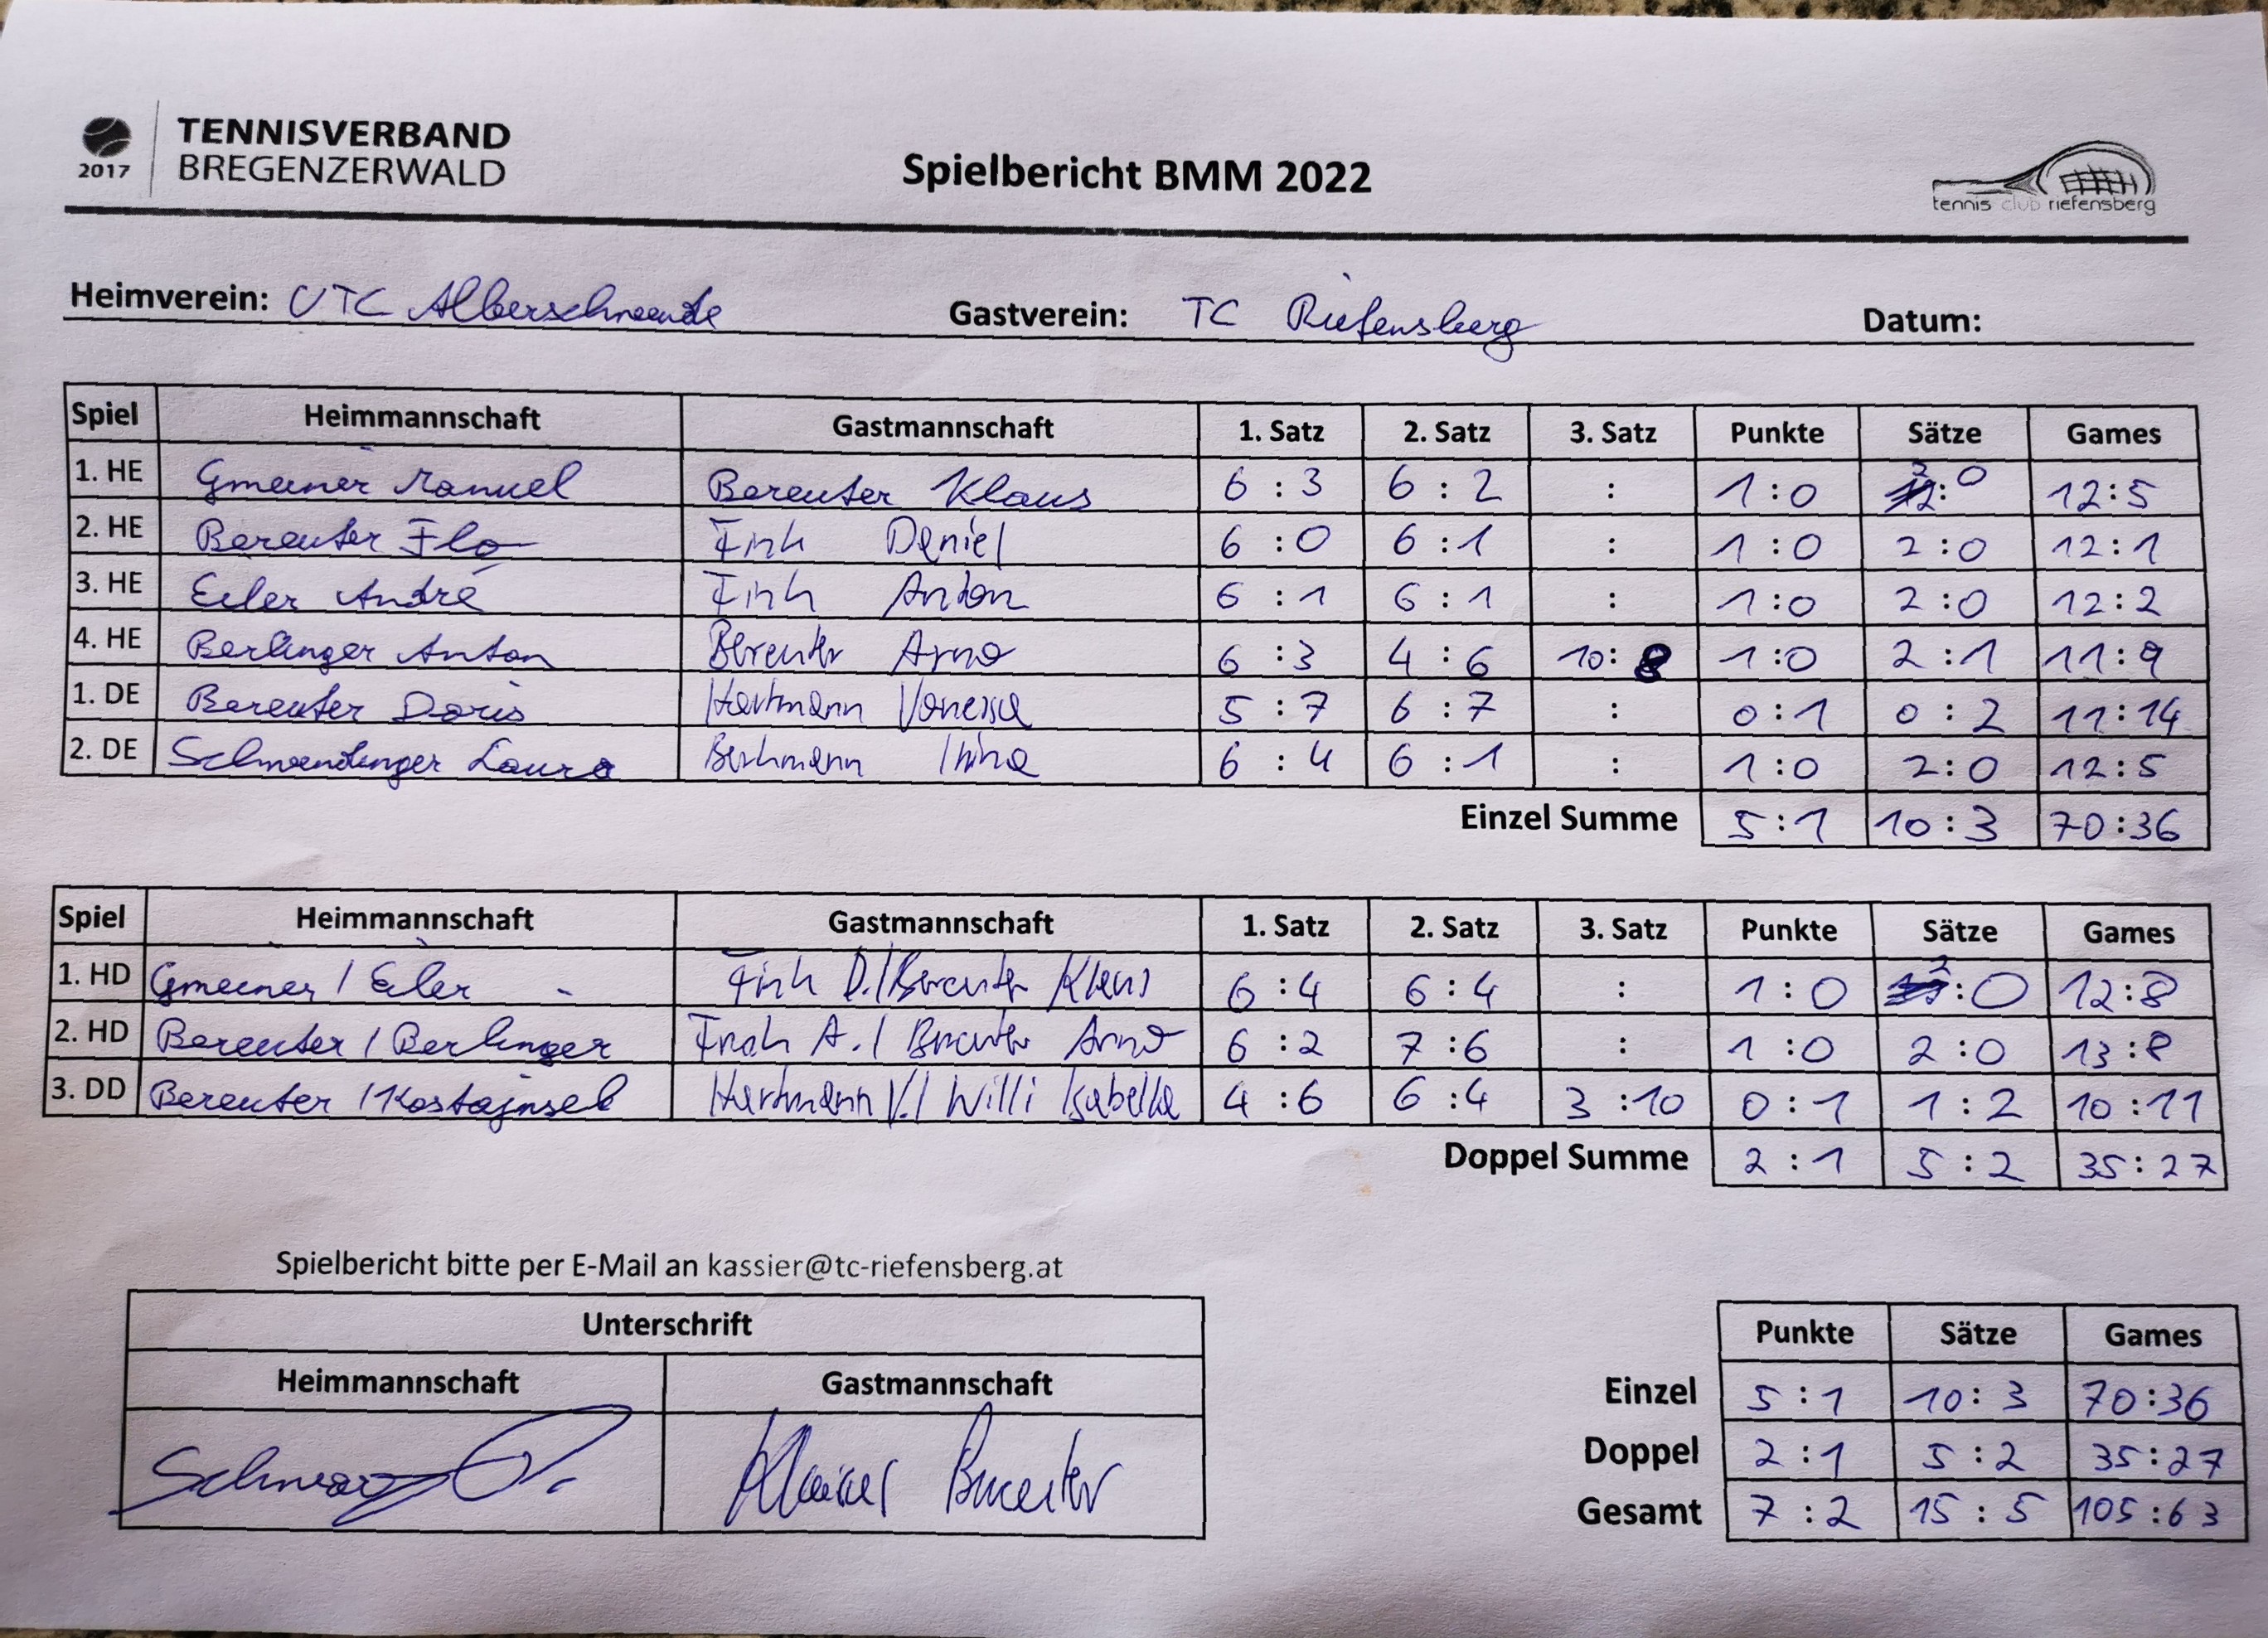 TENNISVERBAND
2017 BREGENZERWALD
Spielbericht BMM 2022
tennis club riefensberg
Heimverein: UTC Alberschwende Gastverein: TC Riefensberg Datum:
Spiel Heimmannschaft Gastmannschaft 1. Satz 2. Satz 3. Satz Punkte Sätze Games
1. HE Gmeiner Manuel Bereuter Klaus 6 : 3 6 : 2 : 1 : 0 2 : 0 12 : 5
2. HE Bereuter Flo Fink Daniel 6 : 0 6 : 1 : 1 : 0 2 : 0 12 : 1
3. HE Eiler André Fink Anton 6 : 1 6 : 1 : 1 : 0 2 : 0 12 : 2
4. HE Berlinger Anton Bereuter Arno 6 : 3 4 : 6 10 : 8 1 : 0 2 : 1 11 : 9
1. DE Bereuter Doris Hartmann Vanessa 5 : 7 6 : 7 : 0 : 1 0 : 2 11 : 14
2. DE Schwendinger Laura 6 : 4 6 : 1 : 1 : 0 2 : 0 12 : 5
Einzel Summe 5 : 1 10 : 3 70 : 36
Spiel Heimmannschaft Gastmannschaft 1. Satz 2. Satz 3. Satz Punkte Sätze Games
1. HD Gmeiner / Eiler Fink D. / Bereuter Klaus 6 : 4 6 : 4 : 1 : 0 2 : 0 12 : 8
2. HD Bereuter / Berlinger Fink A. / Bereuter Arno 6 : 2 7 : 6 : 1 : 0 2 : 0 13 : 8
3. DD Bereuter / Kostajnsek Hartmann V. / Willi Isabella 4 : 6 6 : 4 3 : 10 0 : 1 1 : 2 10 : 11
Doppel Summe 2 : 1 5 : 2 35 : 27
Spielbericht bitte per E-Mail an kassier@tc-riefensberg.at
Unterschrift
Heimmannschaft Gastmannschaft
Klaus Bereuter
Punkte Sätze Games
Einzel 5 : 1 10 : 3 70 : 36
Doppel 2 : 1 5 : 2 35 : 27
Gesamt 7 : 2 15 : 5 105 : 63